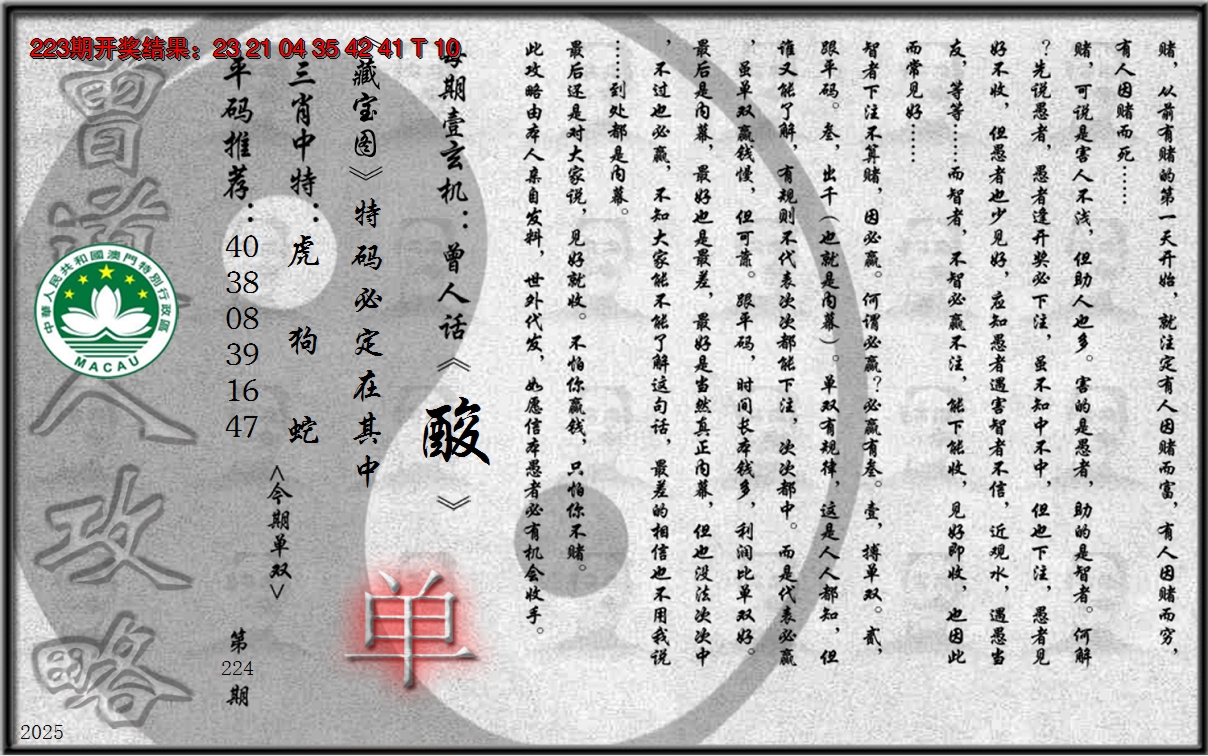 223期开奖结果：23 21 04 35 42 41 T 10
赌，从前有赌的第一天开始，就注定有人因赌而富，有人因赌而穷，
有人因赌而死……
赌，可说是害人不浅，但助人也多。害的是愚者，助的是智者。何解
？先说愚者，愚者逢开奖必下注，虽不知中不中，但也下注，愚者见
好不收，但愚者也少见好，应知愚者遇害智者不信，近观水，遇愚当
友，等等……而智者，不智必赢不注，能下能收，见好即收，也因此
而常见好……
智者下注不算赌，因必赢。何谓必赢？必赢有叁。壹，搏单双。贰，
跟平码。叁，出千（也就是内幕）。单双有规律，这是人人都知，但
谁又能了解，有规则不代表次次都能下注，次次都中。而是代表必赢
，虽单双赢钱慢，但可靠。跟平码，时间长本钱多，利润比单双好。
最后是内幕，最好也是最差，最好是当然真正内幕，但也没法次次中
，不过也必赢，不知大家能不能了解这句话，最差的相信也不用我说
……到处都是内幕。
最后还是对大家说，见好就收。不怕你赢钱，只怕你不赌。
此攻略由本人亲自发料，世外代发，如愿信本愚者必有机会收手。
每期壹玄机：曾人话《酸》
《藏宝图》特码必定在其中
单
三肖中特：虎 狗 蛇
<今期单双>
平码推荐：40 38 08 39 16 47
第224期
曾道人攻略
中華人民共和國澳門特別行政區
MACAU
2025